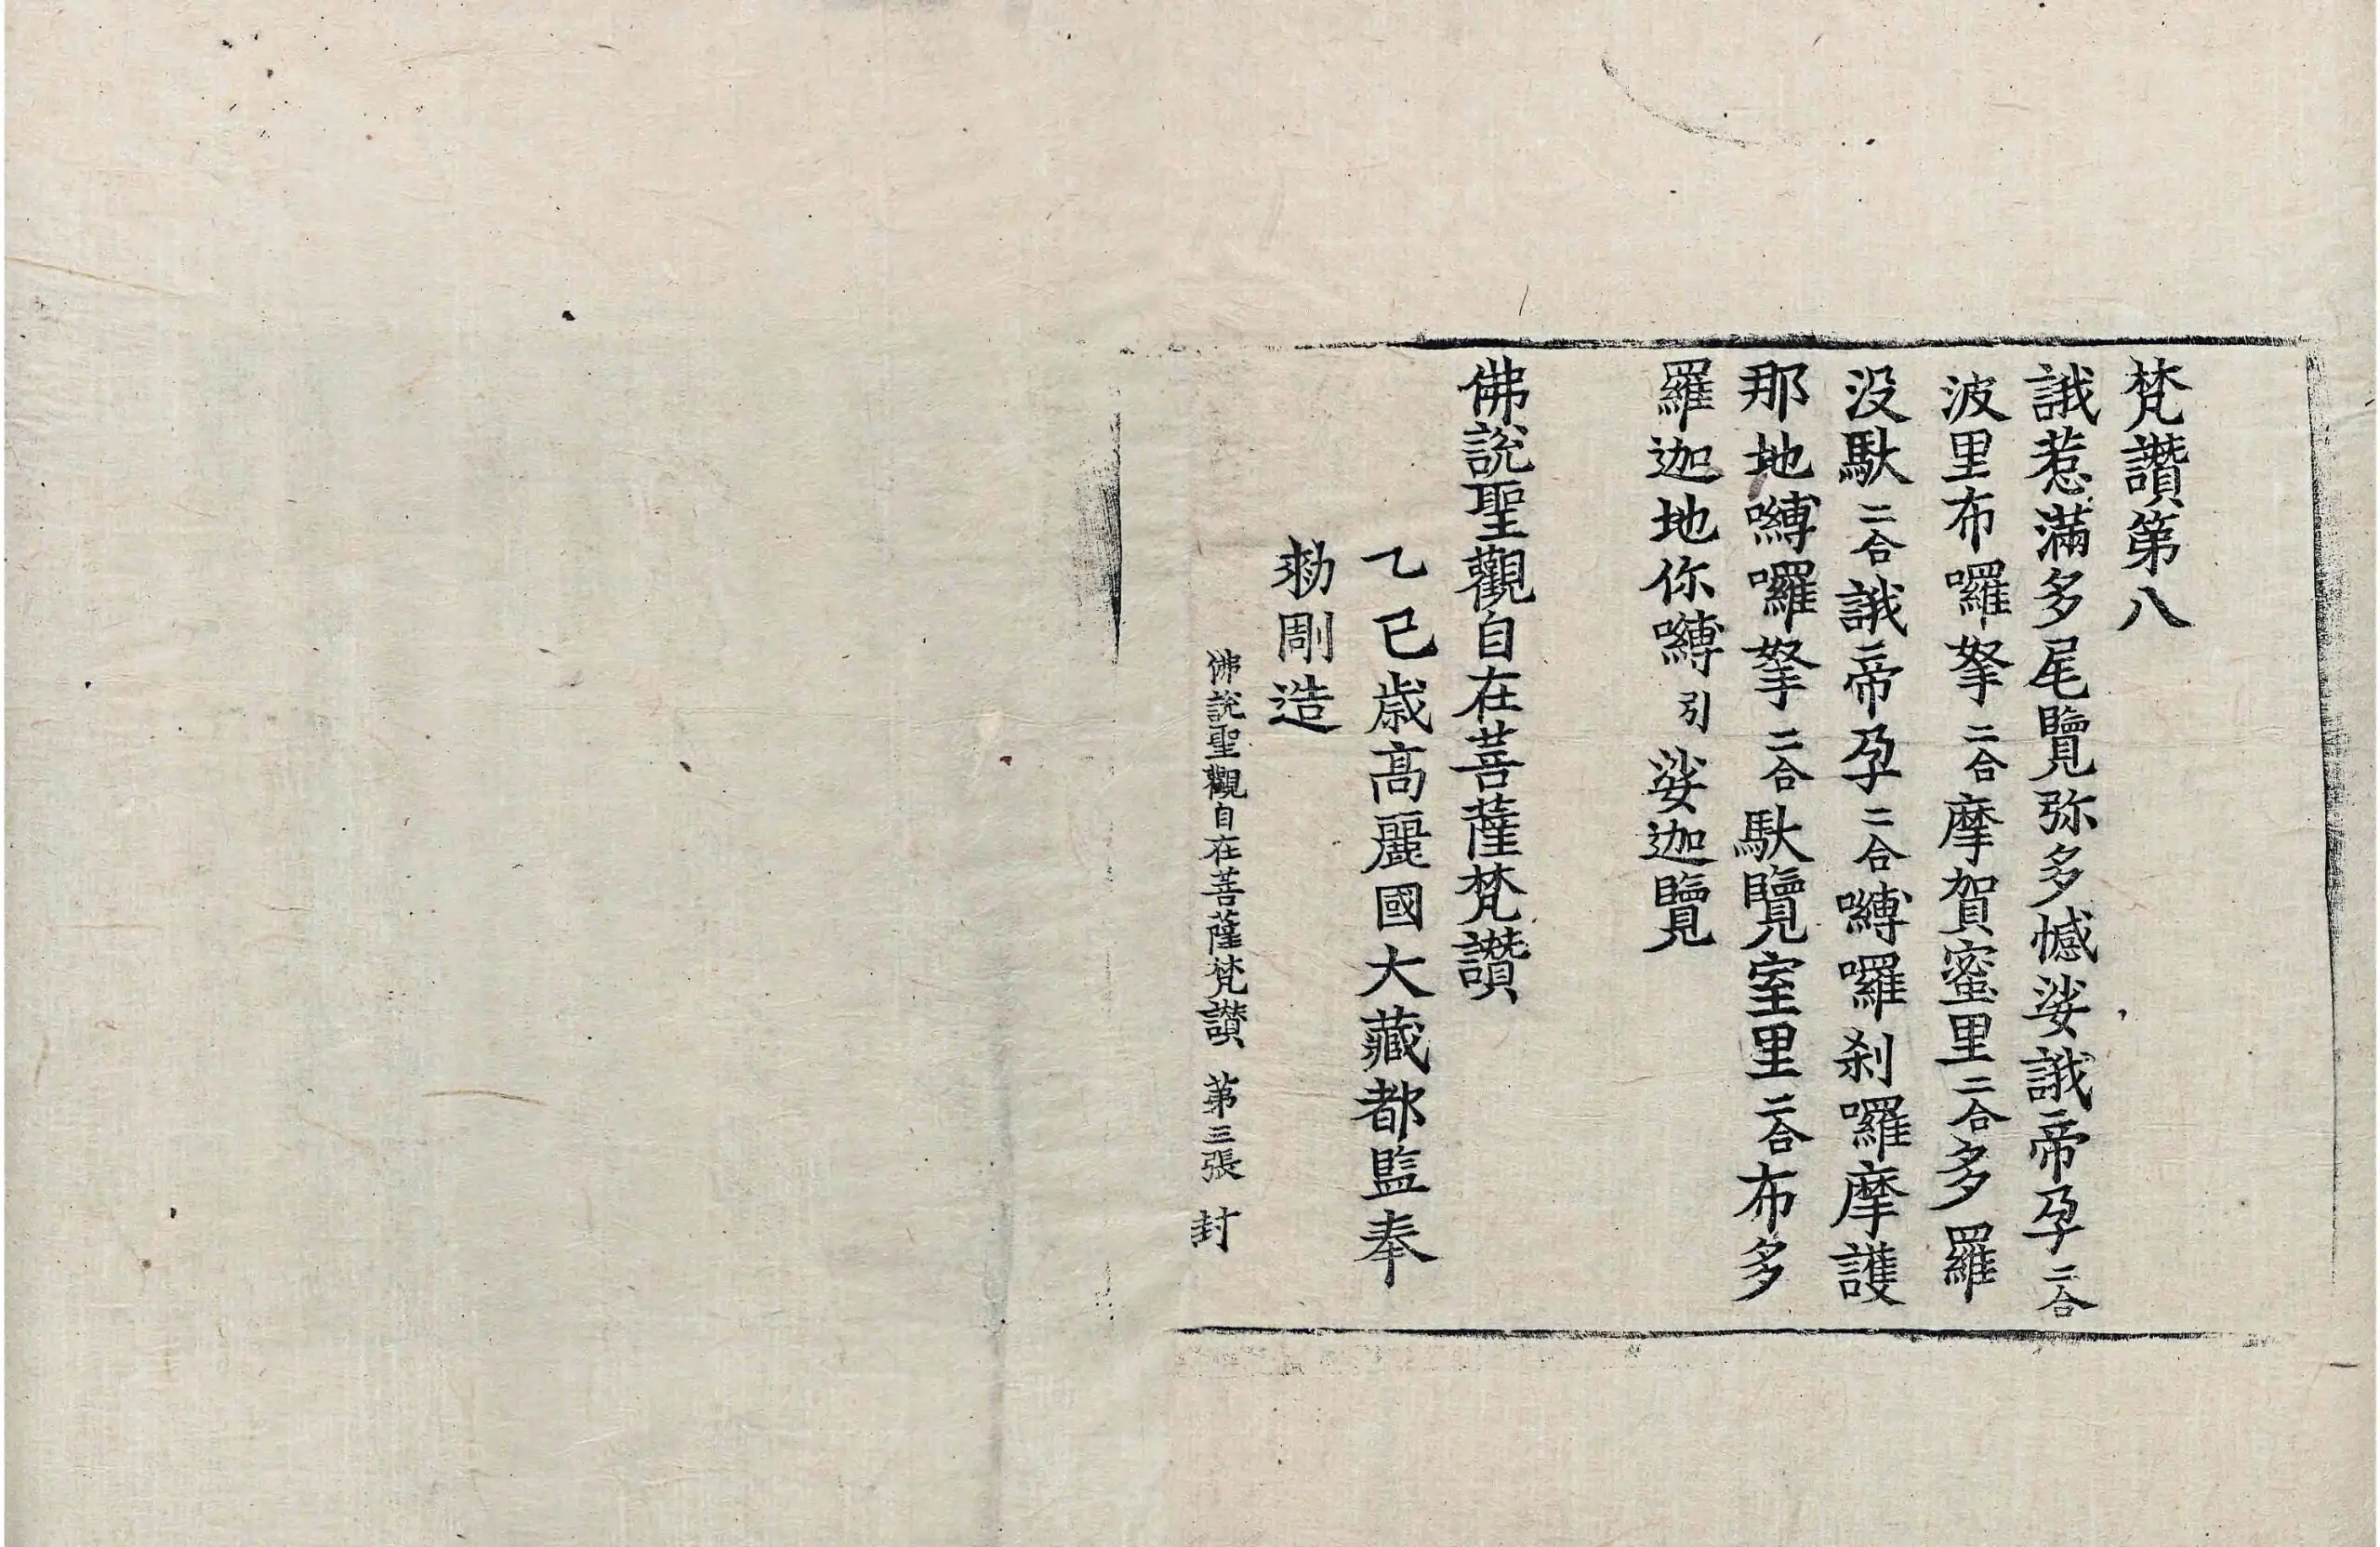 梵讚第八
誐惹滿多尾覽弥多憾娑誐帝孕二合
波里布囉拏二合摩賀蜜里二合多羅
没䭾二合誐帝孕二合嚩囉刹囉摩護
那地嚩囉拏二合䭾覽室里二合布多
羅迦地你嚩引娑迦覽
佛說聖觀自在菩薩梵讚
乙巳歲高麗國大藏都監奉
勑彫造
佛說聖觀自在菩薩梵讚 第三張 封